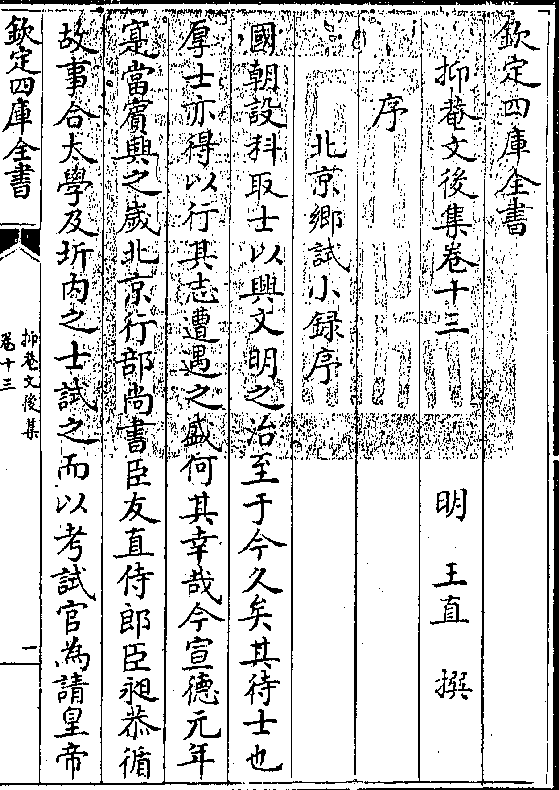 欽定四庫全書
抑菴文後集卷十三
明 王直 撰
序
北京鄉試小録序
國朝設科取士以興文明之治至于今久矣其待士也
厚士亦得以行其志遭遇之盛何其幸哉今宣德元年
寔當賓興之歲北京行部尚書臣友直侍郎臣昶恭循
故事合太學及圻内之士試之而以考試官為請皇帝
欽定四庫全書
抑菴文後集
卷十三
一